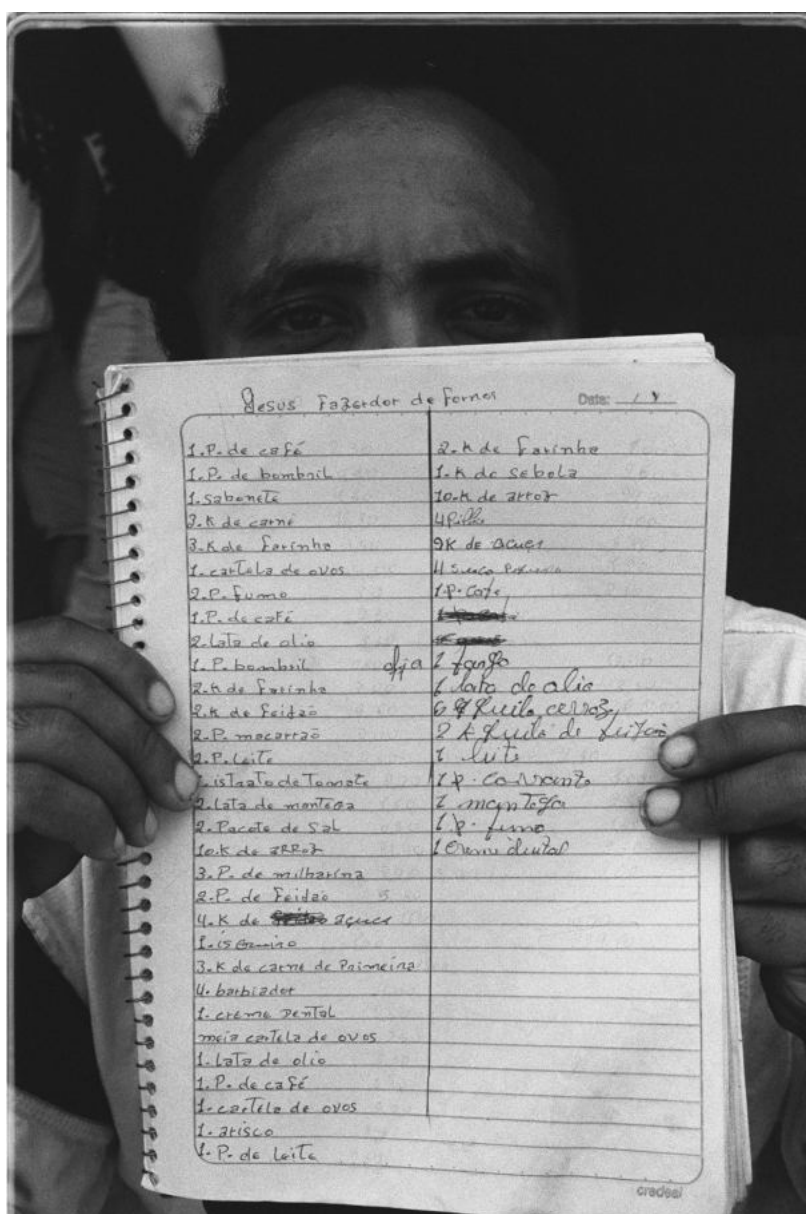 Jesus Fazerdor de Fornos
Data: / /
1.P. de café
1.P. de bombril
1.sabonete
3.K de carne
3.K de farinha
1.cartela de ovos
2.P. fumo
1.P. de café
2.lata de olio
1.P. bombril
2.K de farinha
2.K de feijão
2.P. macarrão
2.P. Leite
1.istrato de Tomate
2.lata de mantega
2.Pacote de Sal
10.K de arroz
3.P. de milharina
2.P. de feijão
4.K de açuca
1.isqueiro
3.K de carne de Primeira
4.barbiador
1.creme Dental
meia cartela de ovos
1.Lata de olio
1.P. de café
1.cartela de ovos
1.arisco
1.P. de Leite
2.K de farinha
1.K de sebola
10.K de arroz
4 Pilha
9K de açuca
4 Suco
1.P. Cafe
1
1 lata de olio
Kuilo
2 Kuilo de
1 leite
1 p.
1 mantega
1 p. fumo
1 Creme dental
credeal